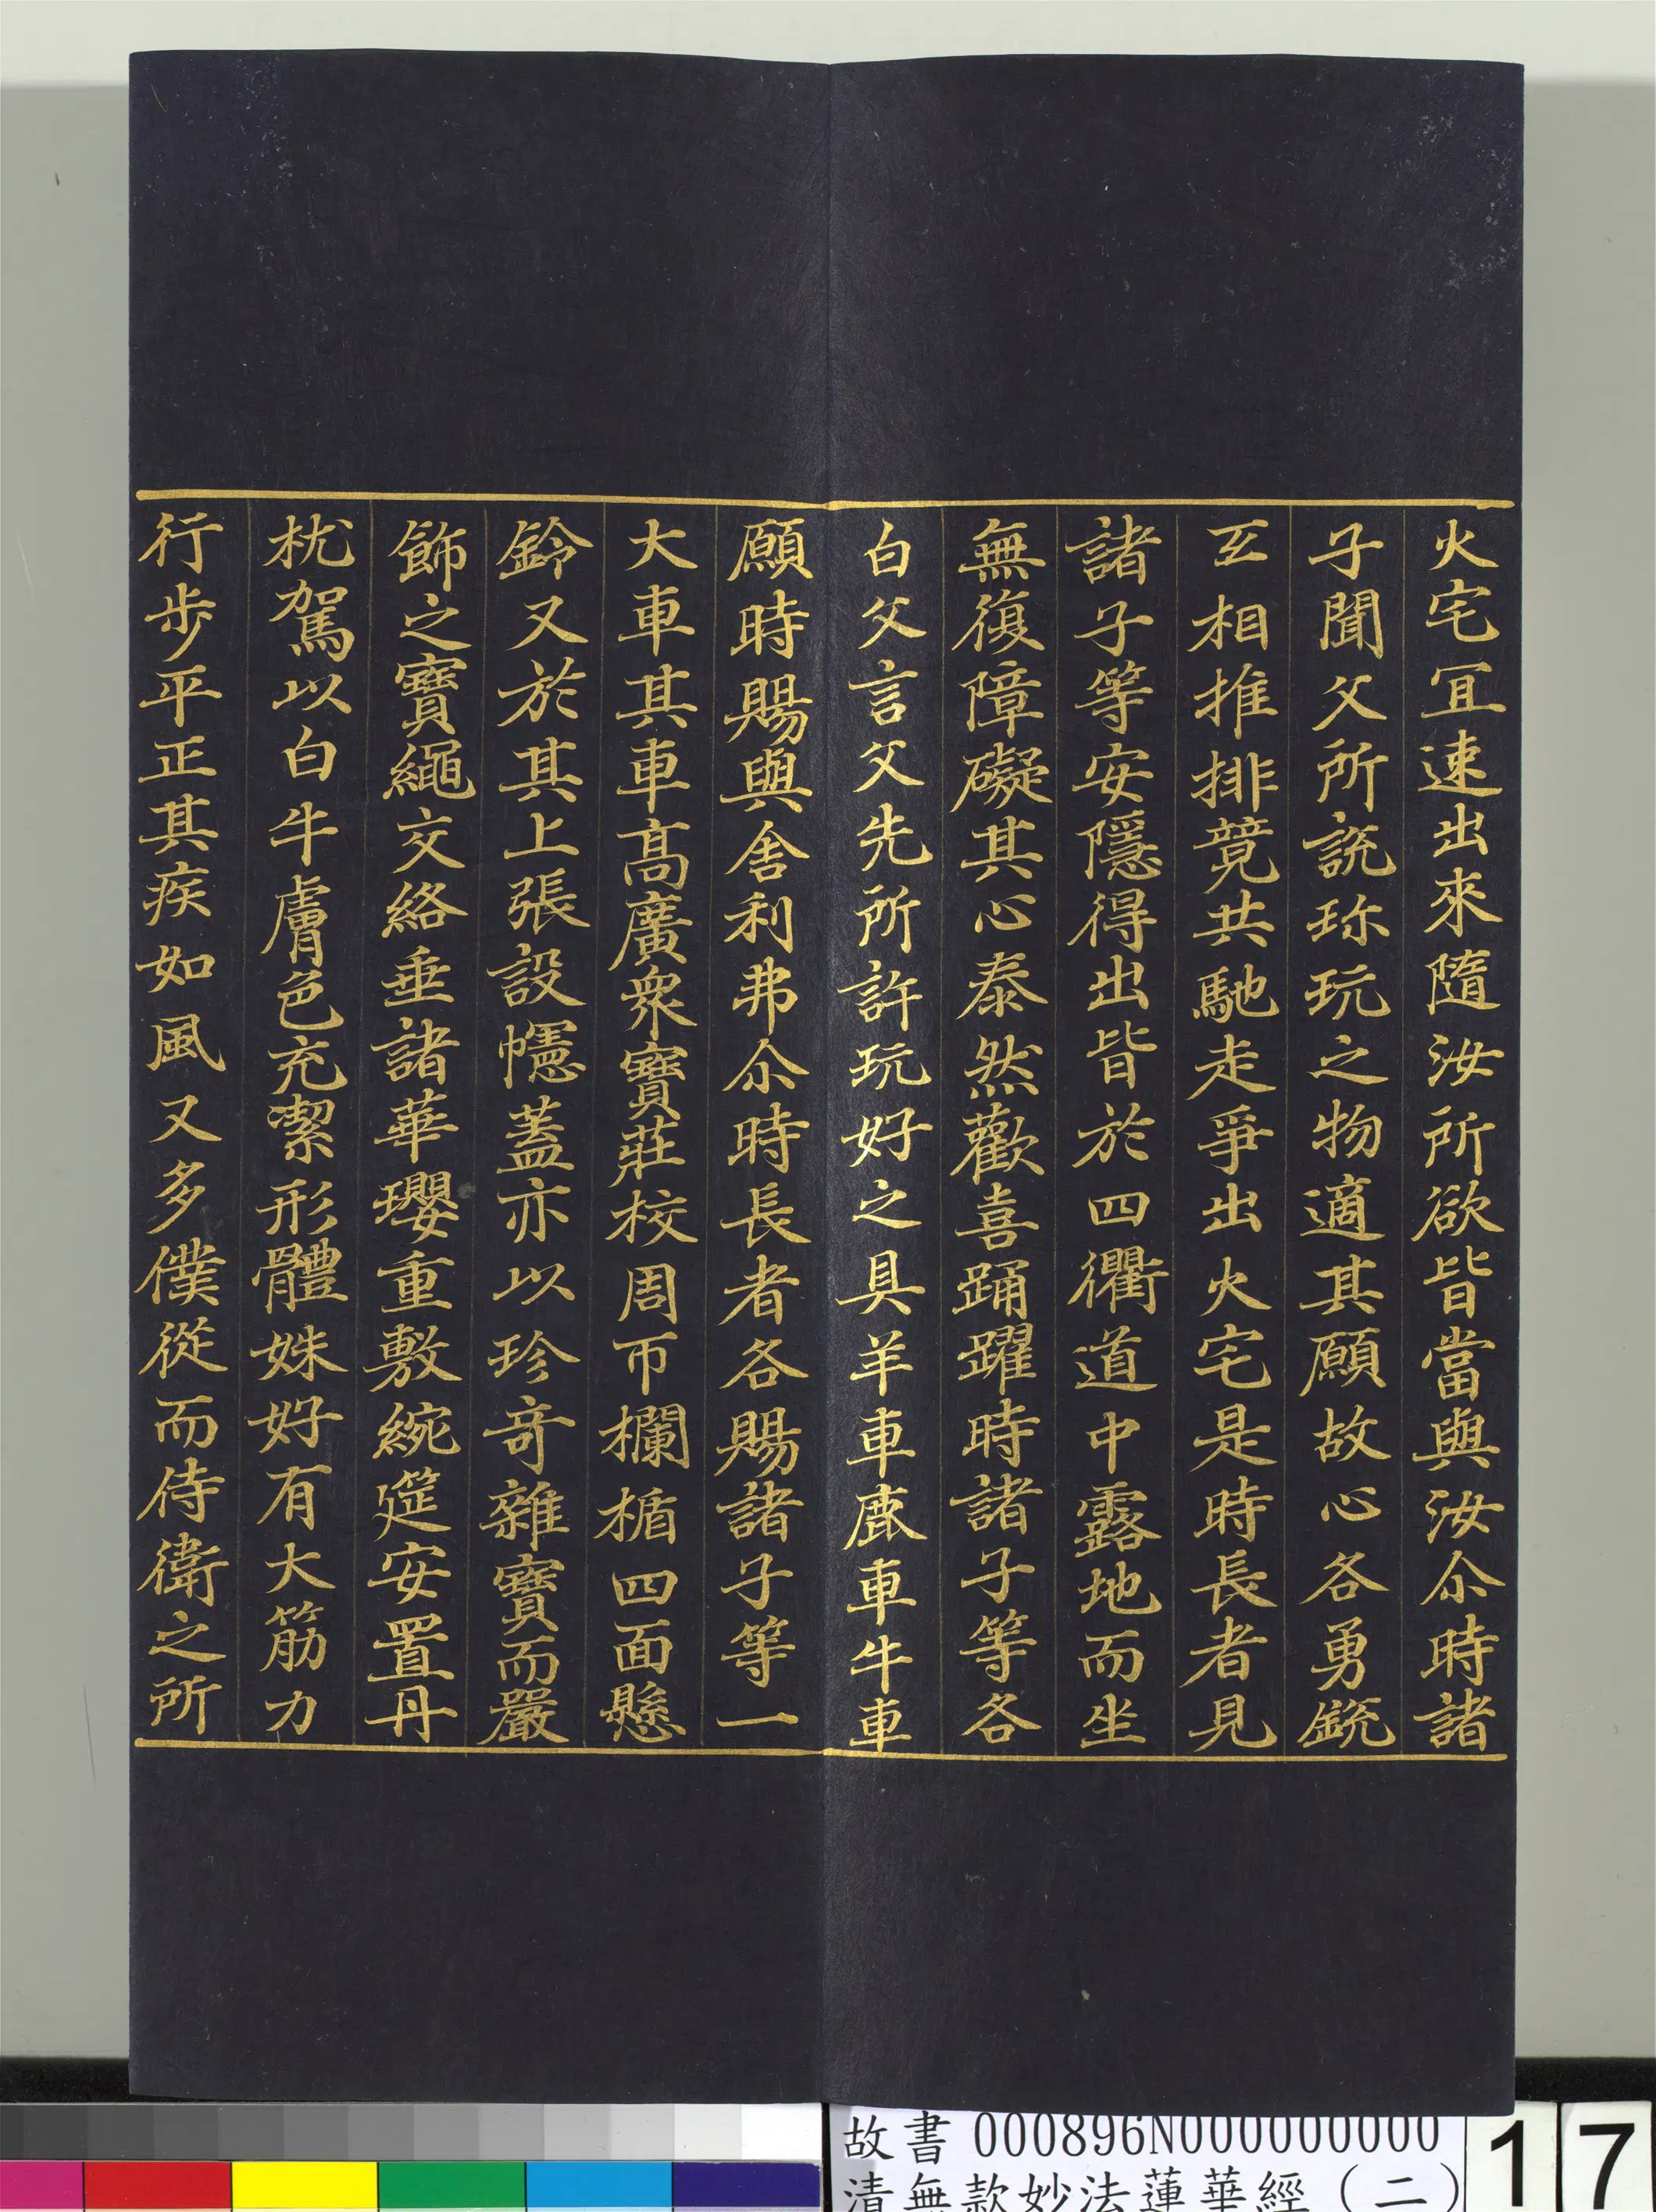 火宅冝速出來隨汝所欲皆當與汝尒時諸
子聞父所說珎玩之物適其願故心各勇銳
互相推排競共馳走爭出火宅是時長者見
諸子等安隱得出皆於四衢道中露地而坐
無復障礙其心泰然歡喜踊躍時諸子等各
白父言父先所許玩好之具羊車鹿車牛車
願時賜與舍利弗尒時長者各賜諸子等一
大車其車髙廣衆寶莊校周帀欄楯四面懸
鈴又於其上張設幰蓋亦以珍奇雜寶而嚴
飾之寶繩交絡垂諸華瓔重敷綩筵安置丹
枕駕以白牛膚色充潔形體姝好有大筋力
行步平正其疾如風又多僕從而侍衛之所
故書 000896N000000000
清無款妙法蓮華經（二）
17